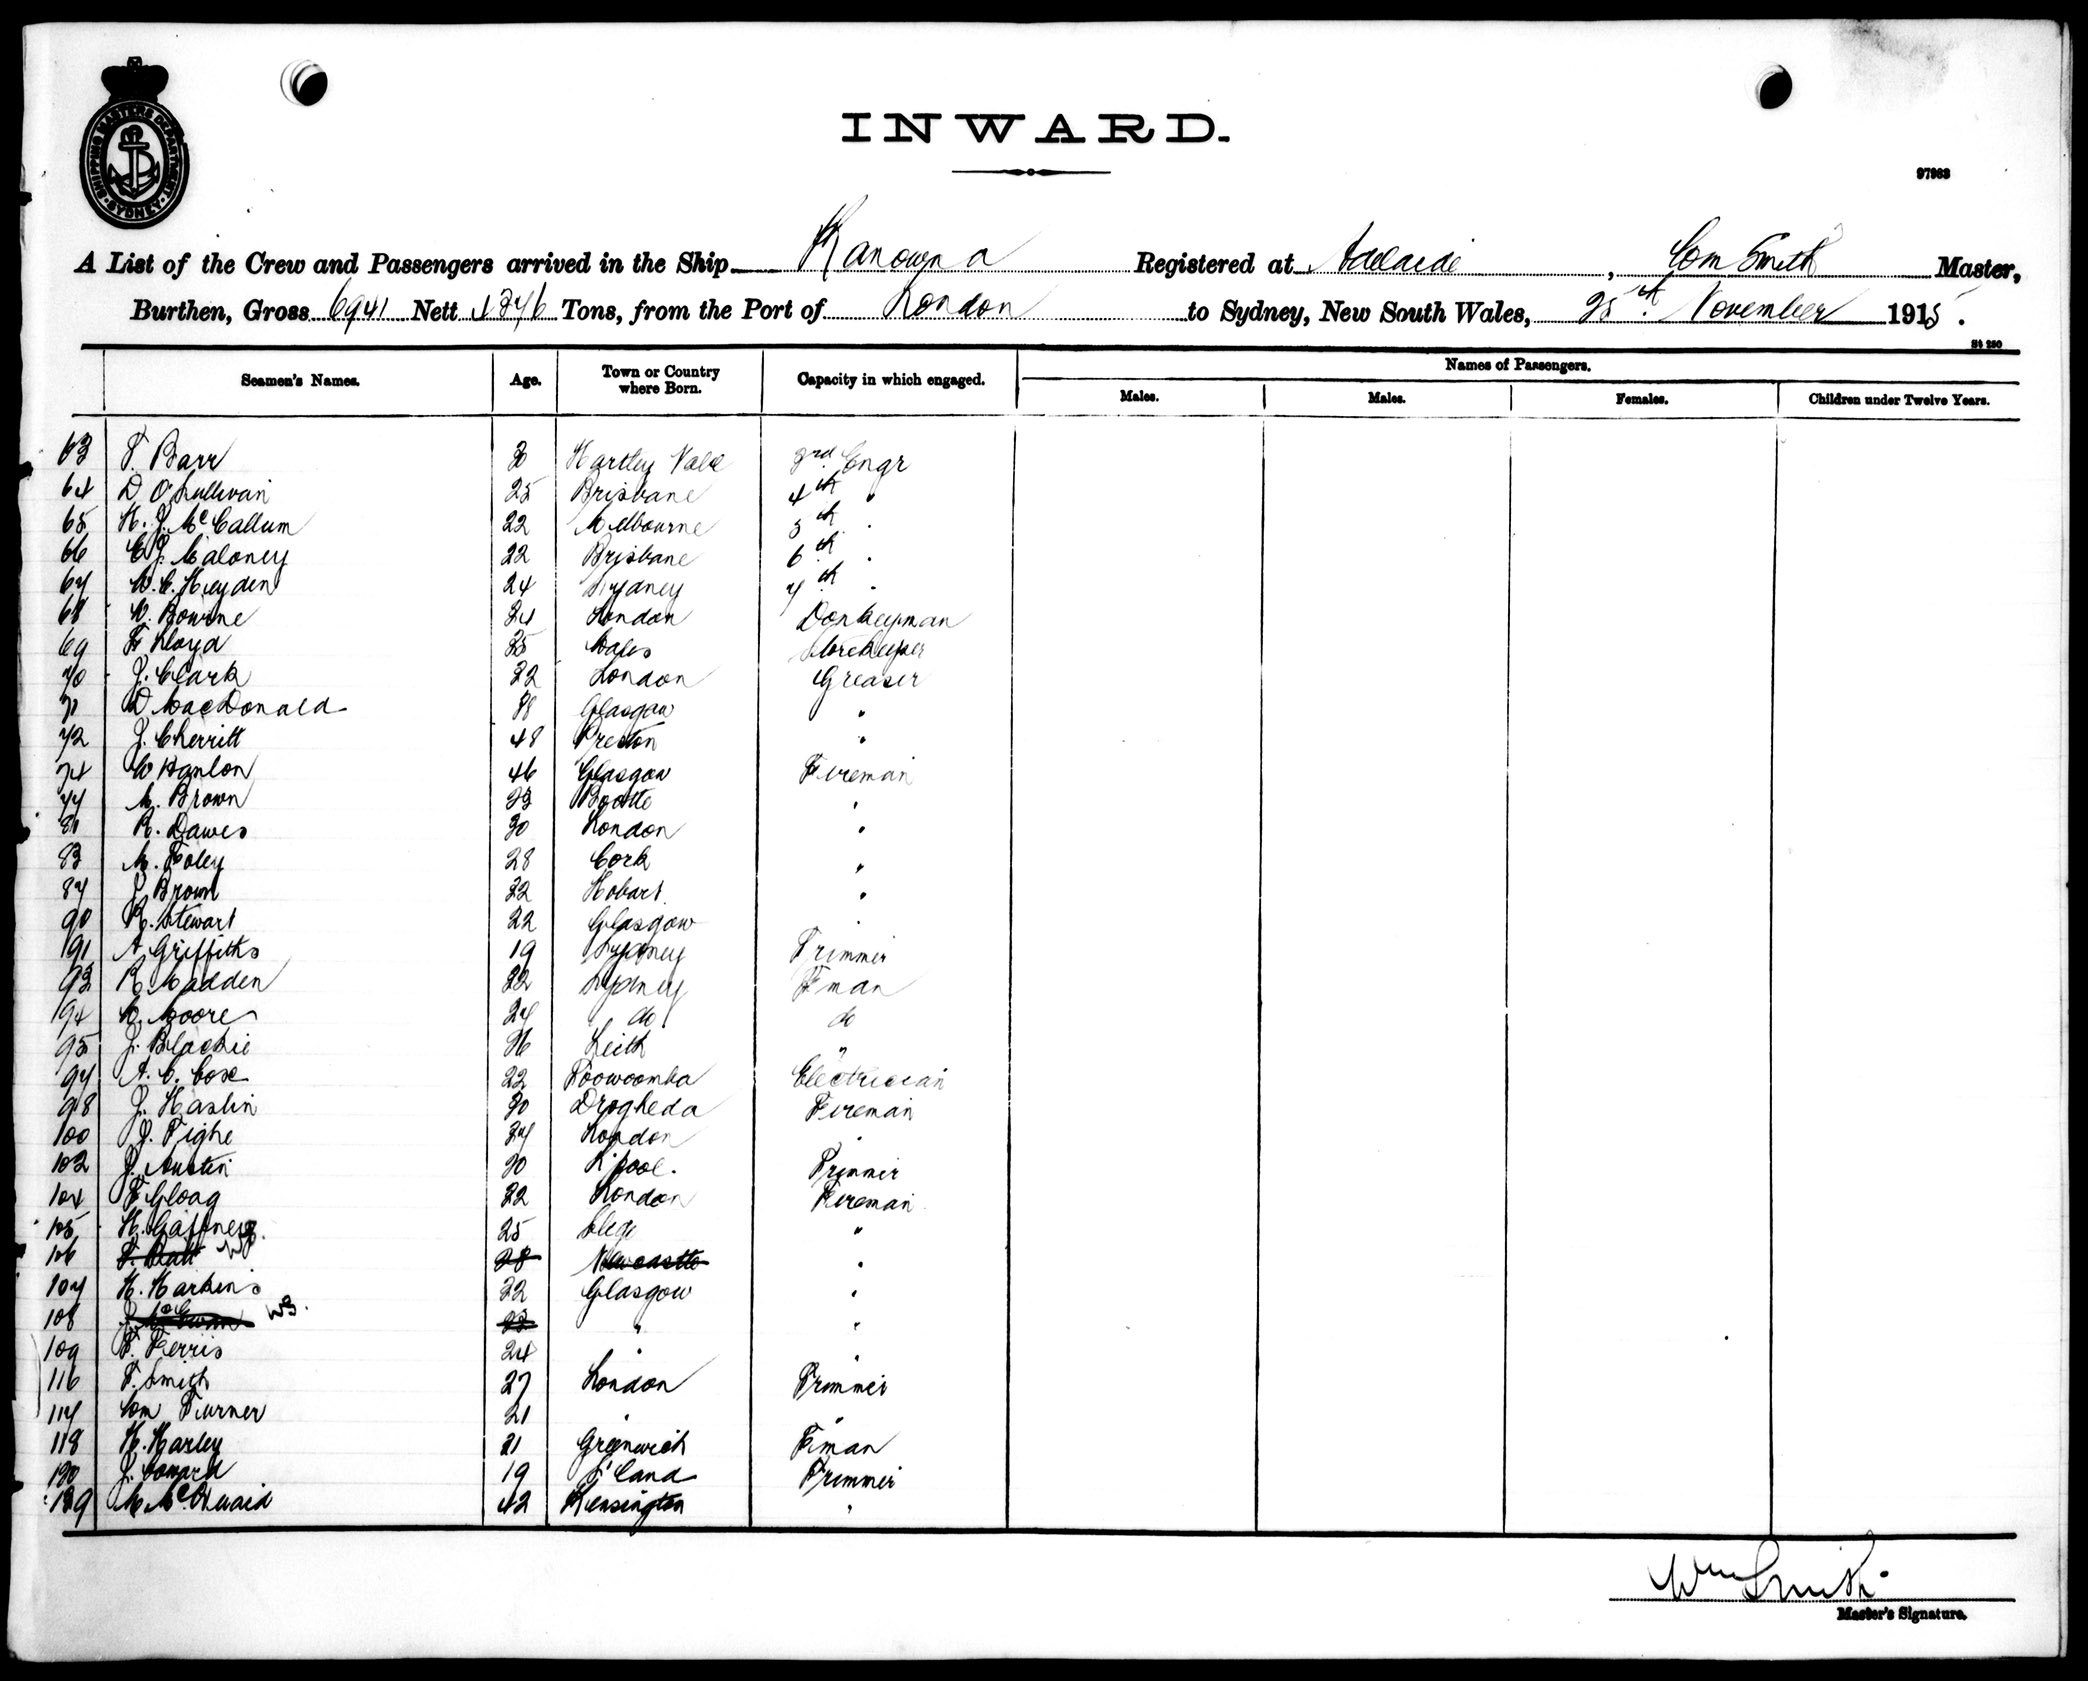 SHIPPING MASTERS DEPARTMENT
SYDNEY
INWARD.
97983
A List of the Crew and Passengers arrived in the Ship Kanowna Registered at Adelaide, Wm Smith Master,
Burthen, Gross 6941 Nett 4346 Tons, from the Port of London to Sydney, New South Wales, 25th November 1915.
St 250
Seamen's Names. Age. Town or Country where Born. Capacity in which engaged. Names of Passengers.
Males. Males. Females. Children under Twelve Years.
63 T. Barr Hartley Vale 3rd Engr
64 D O'Sullivan 25 Brisbane 4th "
65 H. J. McCallum 22 Melbourne 5th "
66 E J. Maloney 22 Brisbane 6th "
67 W. C. Heyden 24 Sydney 7th "
68 W. Bourne 34 London Donkeyman
69 F Lloyd 35 Wales Storekeeper
70 J. Clark 32 London Greaser
71 D MacDonald 38 Glasgow "
72 J. Cherritt 48 Preston "
74 W Hanlon 46 Glasgow Fireman
77 M. Brown 33 Bootle "
81 R. Dawes 30 London "
83 M. Foley 28 Cork "
87 J Brown 22 Hobart "
90 R. Stewart 22 Glasgow "
91 A Griffiths 19 Sydney Trimmer
93 R. Madden 22 Sydney Fman
94 W. Moore 27 do do
95 J. Blackie 36 Leith "
97 A. C. Cox 22 Toowoomba Electrician
98 J. Haslin 30 Drogheda Fireman
100 J. Tighe 37 London "
102 J. Austin 30 L'pool. Trimmer
104 F Gloag 32 London Fireman
105 H. Gaffney 25 "
106 T. Pratt WS 28 Newcastle "
107 H. Harkins 32 Glasgow "
108 J. McEwan WS. 23 " "
109 F. Ferris 24 " "
116 T. Smith 27 London Trimmer
117 Wm Turner 21 " "
118 H. Harley 21 Greenwich Fman
120 J. Coward 19 S'land Trimmer
129 M McQuaid 42 Kensington "
Wm Smith
Master's Signature.